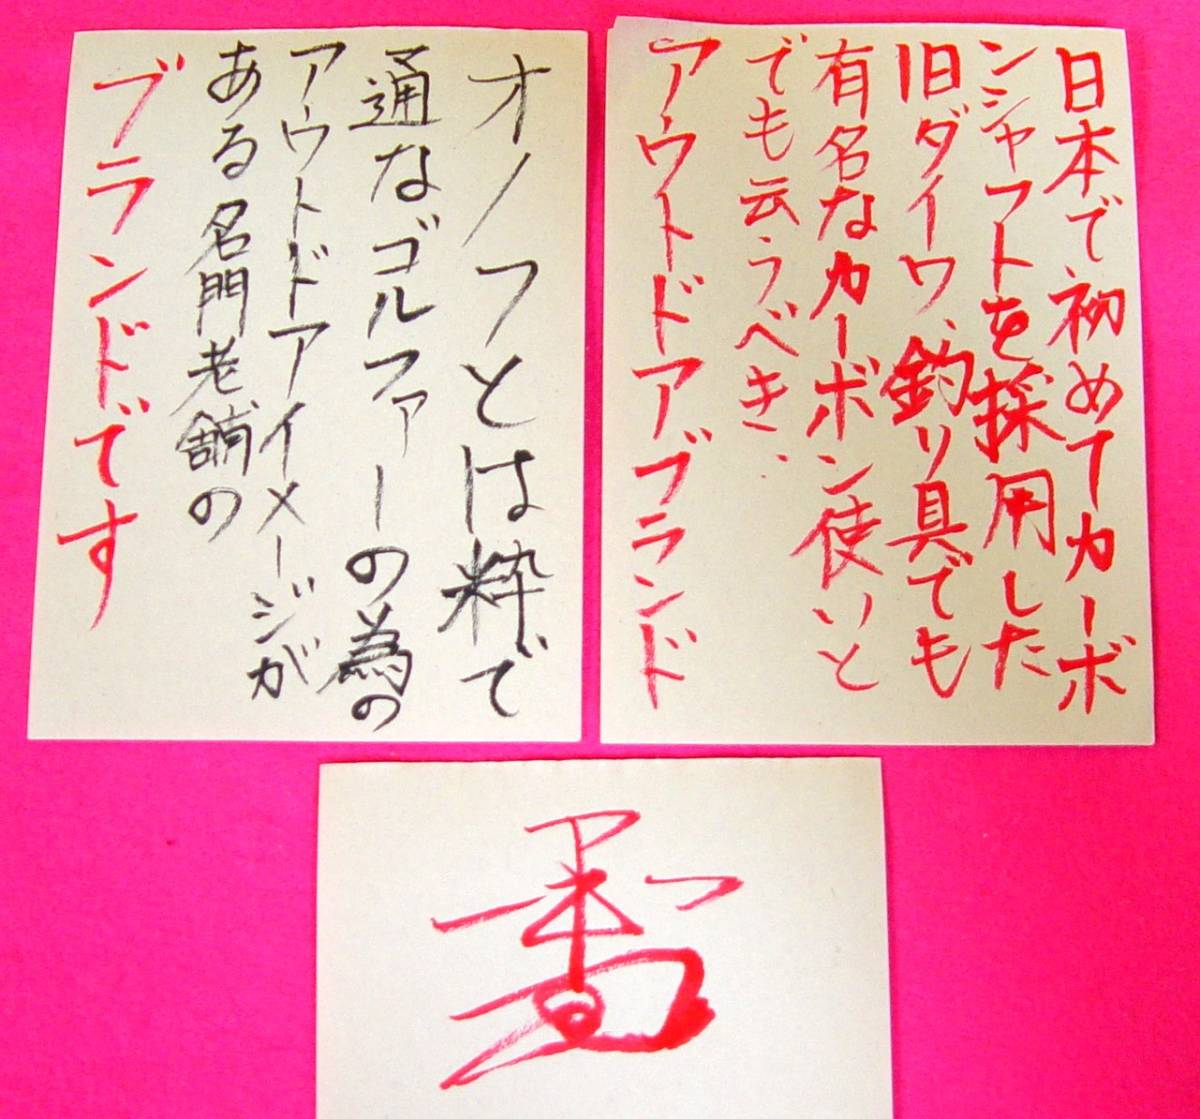 日本で初めてカーボ
ンシャフトを採用した
旧ダイワ、釣り具でも
有名なカーボン使いと
でも云うべき、
アウトドアブランド
オノフとは粋で
通なゴルファーの為の
アウトドアイメージが
ある名門老舗の
ブランドです